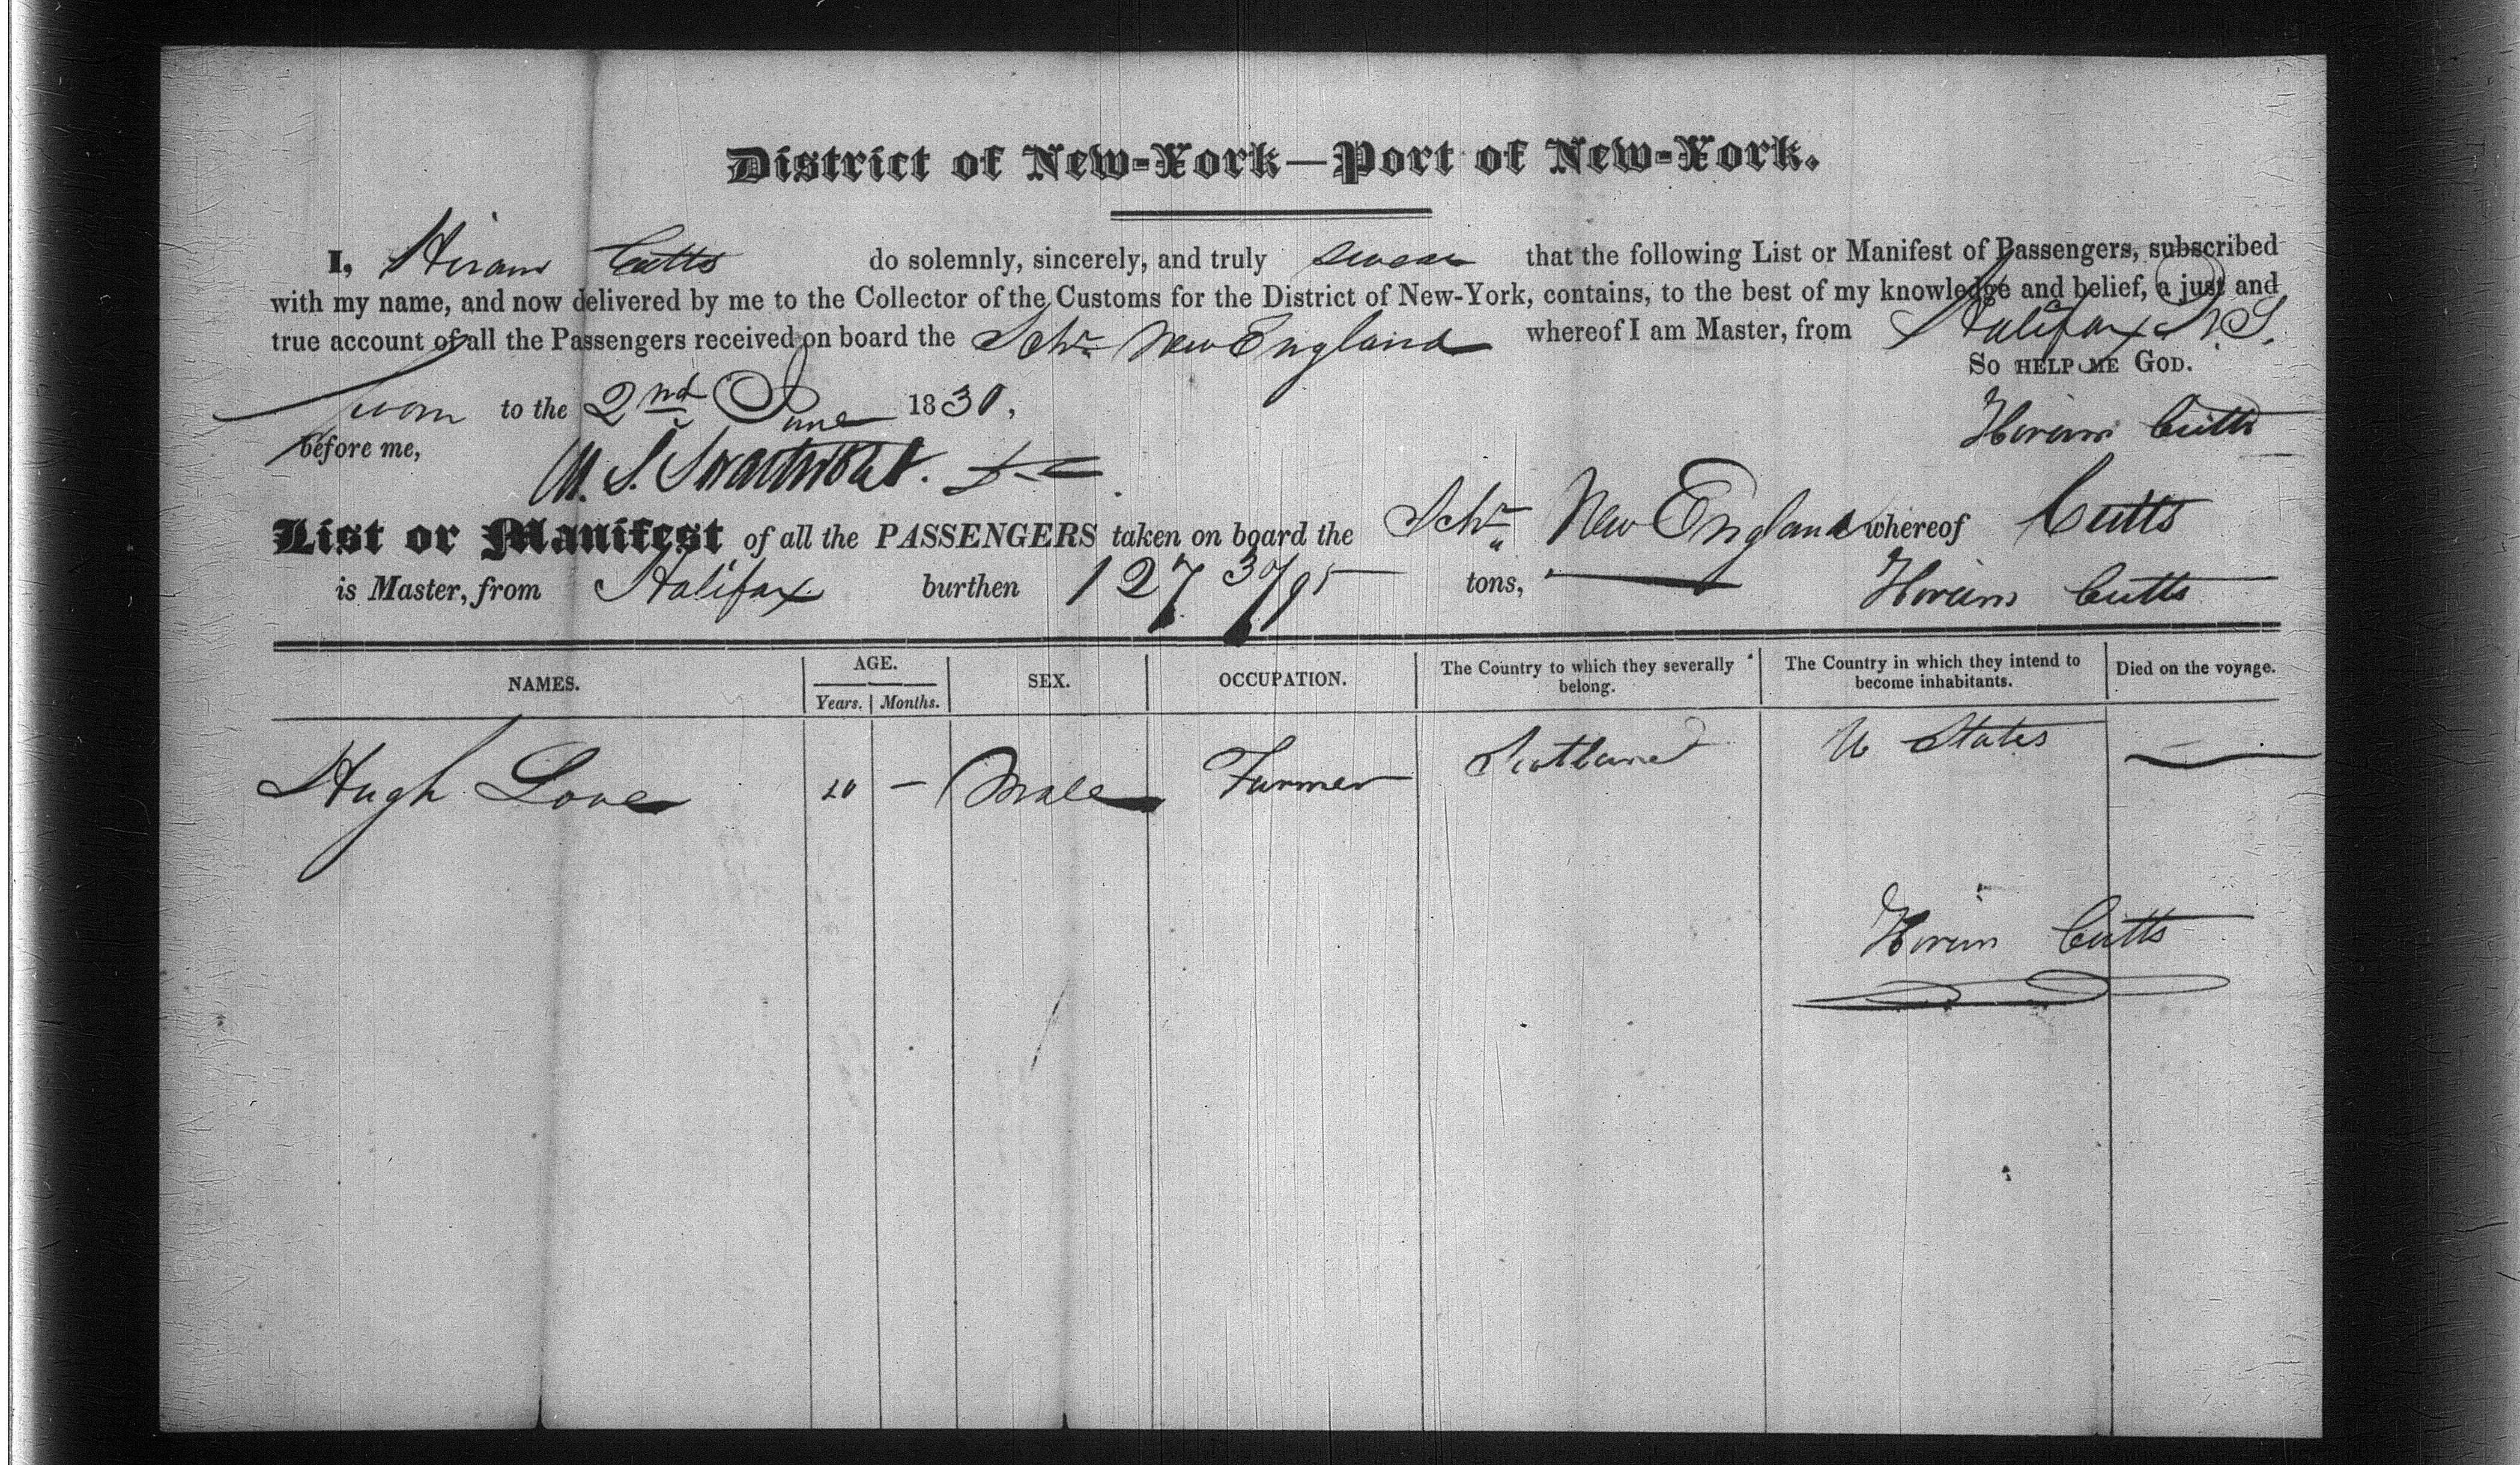 District of New-York—Port of New-York.
I, Hiram Cutts do solemnly, sincerely, and truly swear that the following List or Manifest of Passengers, subscribed
with my name, and now delivered by me to the Collector of the Customs for the District of New-York, contains, to the best of my knowledge and belief, a just and
true account of all the Passengers received on board the Schr New England whereof I am Master, from Halifax N.S.
So HELP ME GOD.
Sworn to the 2nd June 1830,
Hiram Cutts
before me,
M. S. Swartwout.
List or Manifest of all the PASSENGERS taken on board the Schr New England whereof Cutts
is Master, from Halifax burthen 127 30/95 tons, Hiram Cutts
NAMES. AGE. SEX. OCCUPATION. The Country to which they severally belong. The Country in which they intend to become inhabitants. Died on the voyage.
Years. Months.
Hugh Love — Male Farmer Scotland U States —
Hiram Cutts